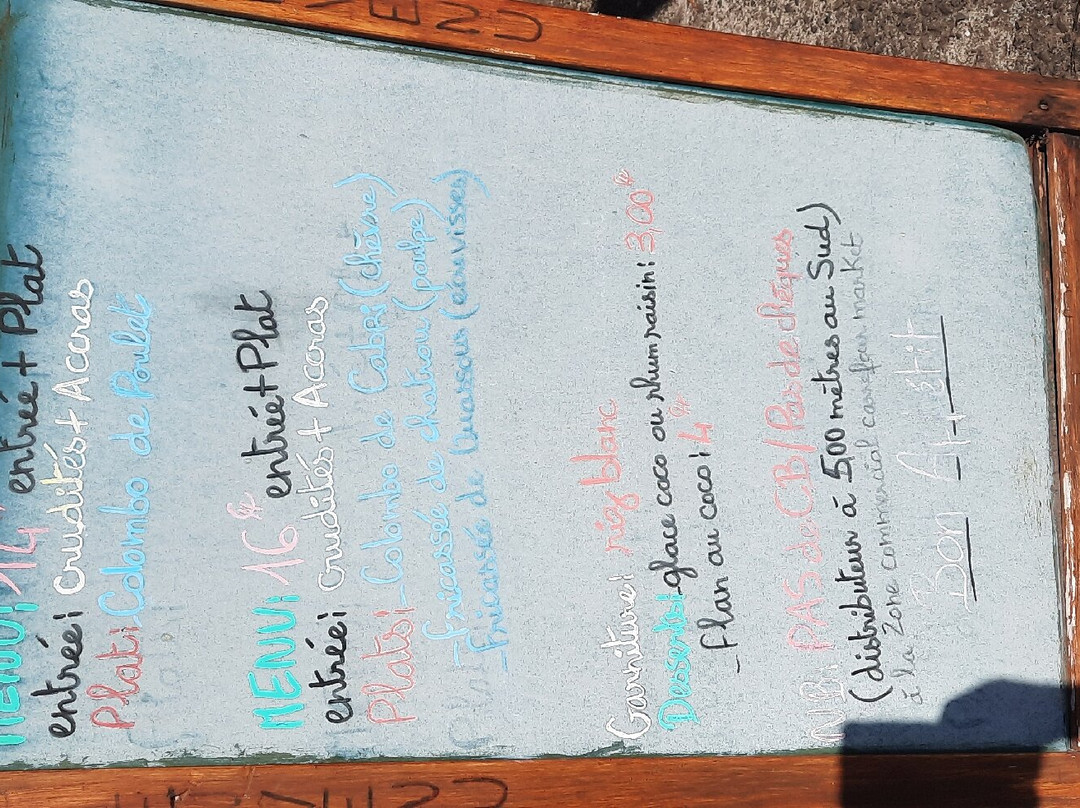 MENU: 14€ entrée + Plat
entrée: Crudités + Accras
Plat: - Colombo de Poulet
MENU: 16€ entrée + Plat
entrée: Crudités + Accras
Plats: - Colombo de Cabri (chèvre)
- fricassée de chatrou (poulpe)
- fricassée de Ouassous (écrevisses)
Garniture: riz blanc
Desserts: - glace coco ou rhum raisin: 3,00€
- flan au coco: 4€
NB: PAS de CB / Pas de chèques
(distributeur à 500 mètres au Sud)
à la Zone commercial carrefour market
Bon